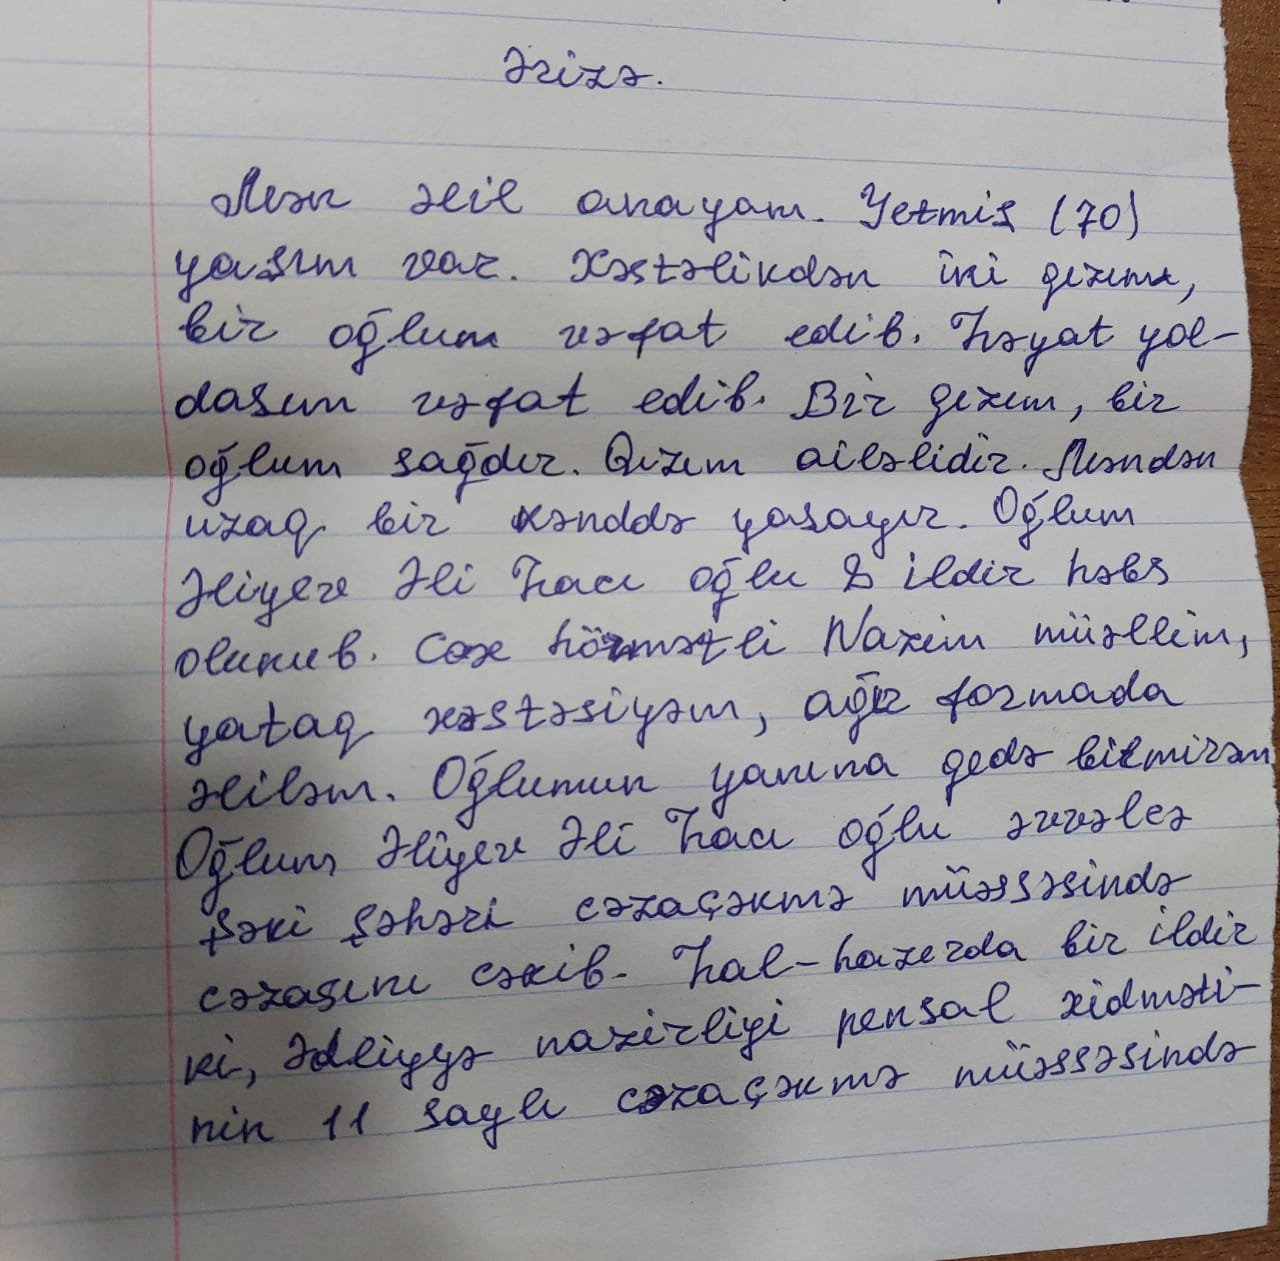 Ərizə.
Mən əlil anayam. Yetmiş (70)
yaşım var. Xəstəlikdən iki qızım,
bir oğlum vəfat edib. Həyat yol-
daşım vəfat edib. Bir qızım, bir
oğlum sağdır. Qızım ailəlidir. Məndən
uzaq bir kənddə yaşayır. Oğlum
Əliyev Əli Hacı oğlu 8 ildir həbs
olunub. Cox hörmətli Nazim müəllim,
yataq xəstəsiyəm, ağır formada
əliləm. Oğlumun yanına gedə bilmirəm
Oğlum, Əliyev Əli Hacı oğlu əvvəlcə
Şəki şəhəri cəzaçəkmə müəssəsində
cəzasını cəkib. Hal-hazırda bir ildir
ki, Ədliyyə nazirliyi pensal xidməti-
nin 11 saylı cəzaçəkmə müəssəsində